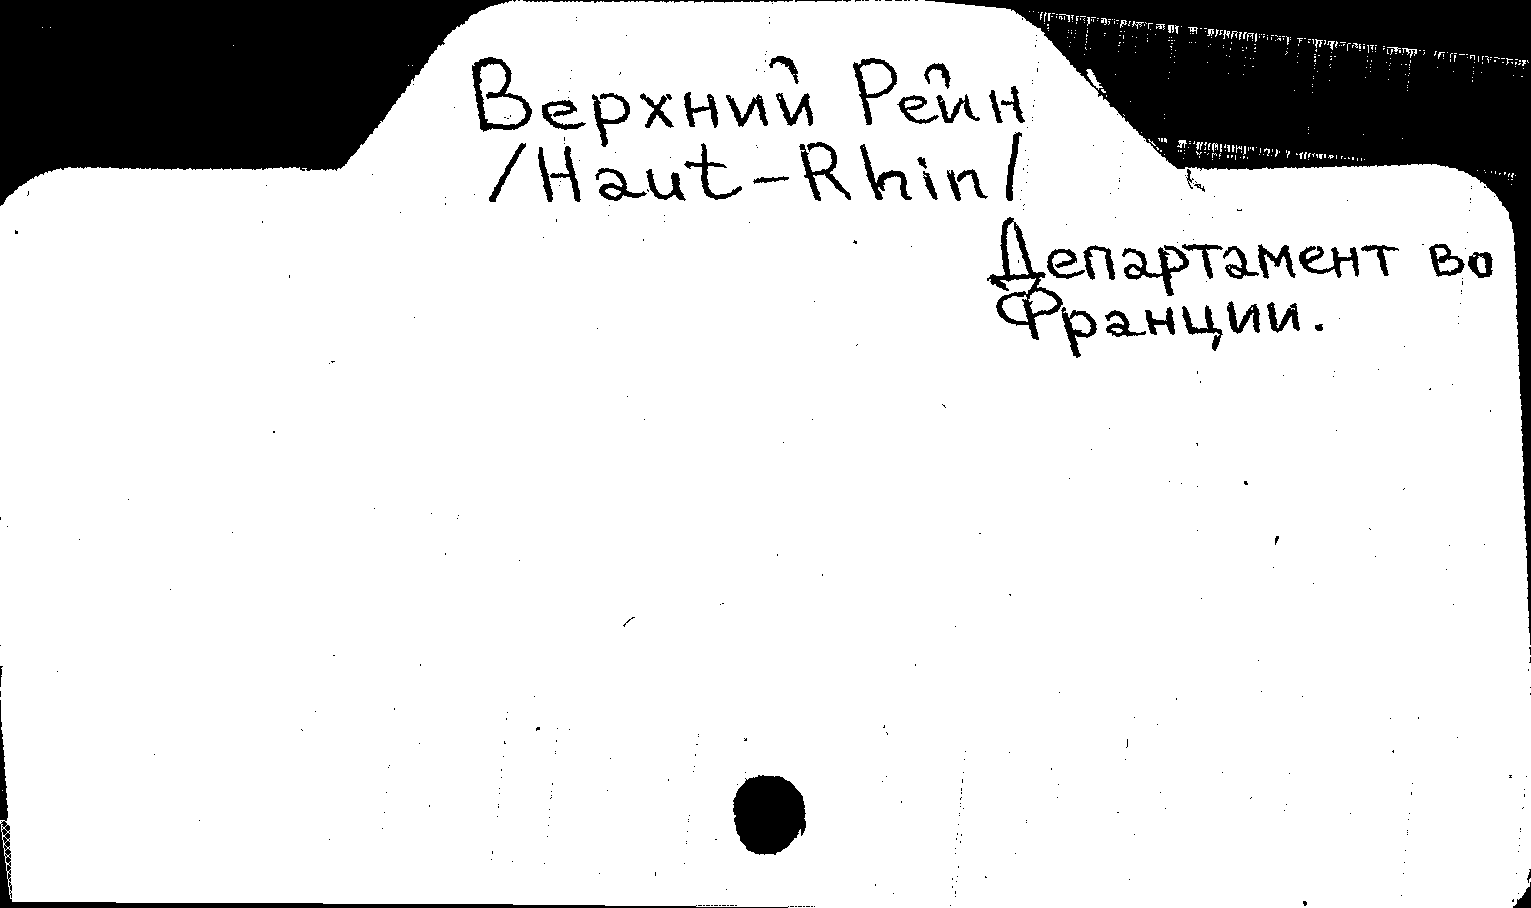 Верхний Рейн
/Haut-Rhin/
Департамент во
Франции.